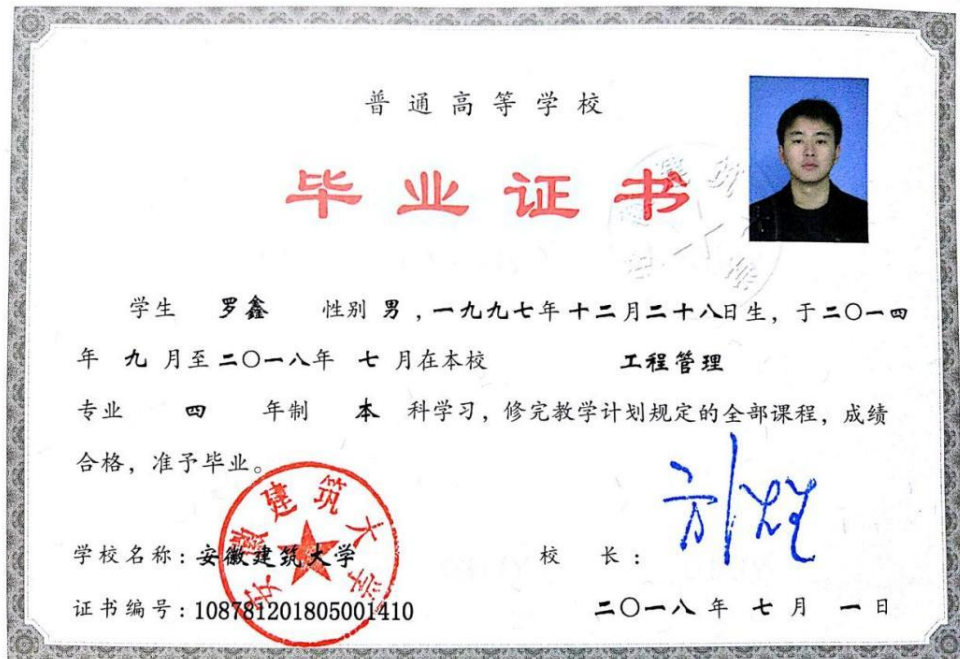 普通高等学校
毕业证书
学生 罗鑫 性别 男，一九九七年十二月二十八日生，于二〇一四
年 九 月至二〇一八年 七 月在本校 工程管理
专业 四 年制 本 科学习，修完教学计划规定的全部课程，成绩
合格，准予毕业。
安徽建筑大学
学校名称：安徽建筑大学 校 长：
证书编号：108781201805001410 二〇一八 年 七 月 一 日